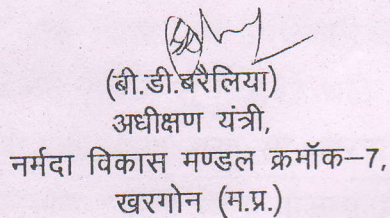 (बी.डी.बरैलिया)
अधीक्षण यंत्री,
नर्मदा विकास मण्डल क्रमॉक–7,
खरगोन (म.प्र.)